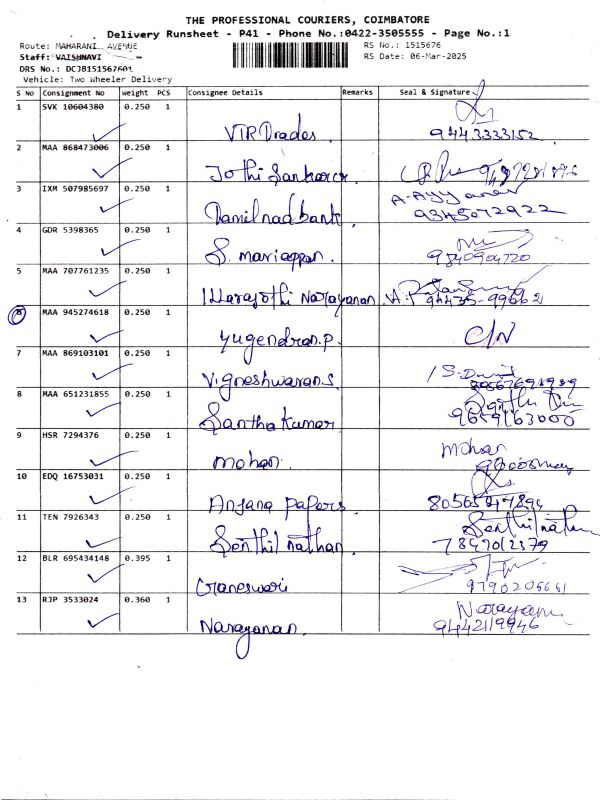 THE PROFESSIONAL COURIERS, COIMBATORE
Delivery Runsheet - P41 - Phone No.:0422-3505555 - Page No.:1
Route: MAHARANI AVENUE RS No.: 1515676
Staff: VAISHNAVI RS Date: 06-Mar-2025
DRS No.: DCJB151567601
Vehicle: Two Wheeler Delivery
S No Consignment No Weight PCS Consignee Details Remarks Seal & Signature
1 SVK 10604380 0.250 1
VTR Trades 9443333152
2 MAA 868473006 0.250 1
Jothi
3 IXM 507985697 0.250 1
Tamilnad bank A. Ayyanar
9345072922
4 GDR 5398365 0.250 1
S. mariappan. 9840904720
5 MAA 707761235 0.250 1
Narayanan 94435-99662
6 MAA 945274618 0.250 1
yugendran.p. C/N
7 MAA 869103101 0.250 1
Vigneshwaran.s
8 MAA 651231855 0.250 1
Santha kumar 9659163000
9 HSR 7294376 0.250 1
mohan. Mohan
10 EDQ 16753031 0.250 1
Anjana papers
11 TEN 7926343 0.250 1
Senthil nathan Senthilnathan
7849012379
12 BLR 695434148 0.395 1
Ganeswari 9790205661
13 RJP 3533024 0.360 1
Narayanan. Narayanan
9442119946